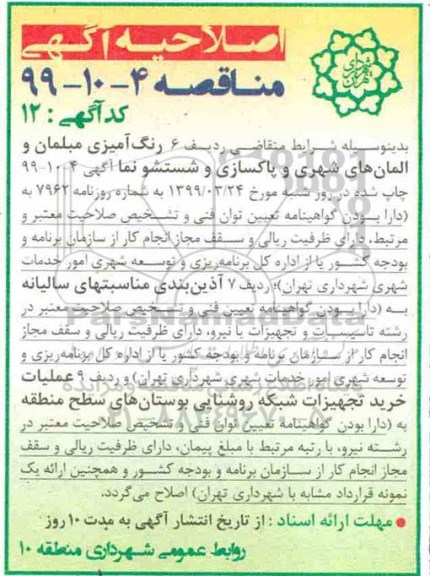 اصلاحیه آگهی
مناقصه ۴-۱۰-۹۹
کد آگهی : ۱۲
بدینوسیله شرایط متقاضی ردیف ۶ رنگ‌آمیزی مبلمان و
المان‌های شهری و پاکسازی و شستشو نما آگهی ۴-۱۰-۹۹
چاپ شده در روز شنبه مورخ ۱۳۹۹/۰۳/۲۴ به شماره روزنامه ۷۹۶۲ به
(دارا بودن گواهینامه تعیین توان فنی و تشخیص صلاحیت معتبر و
مرتبط، دارای ظرفیت ریالی و سقف مجاز انجام کار از سازمان برنامه و
بودجه کشور یا از اداره کل برنامه‌ریزی و توسعه شهری امور خدمات
شهری شهرداری تهران)؛ ردیف ۷ آذین‌بندی مناسبتهای سالیانه
به (دارا بودن گواهینامه تعیین توان فنی و تشخیص صلاحیت معتبر در
رشته تاسیسات و تجهیزات یا نیرو، دارای ظرفیت ریالی و سقف مجاز
انجام کار از سازمان برنامه و بودجه کشور یا از اداره کل برنامه‌ریزی و
توسعه شهری امور خدمات شهری شهرداری تهران) و ردیف ۹ عملیات
خرید تجهیزات شبکه روشنایی بوستان‌های سطح منطقه
به (دارا بودن گواهینامه تعیین توان فنی و تشخیص صلاحیت معتبر در
رشته نیرو، با رتبه مرتبط با مبلغ پیمان، دارای ظرفیت ریالی و سقف
مجاز انجام کار از سازمان برنامه و بودجه کشور و همچنین ارائه یک
نمونه قرارداد مشابه با شهرداری تهران) اصلاح می‌گردد.
● مهلت ارائه اسناد : از تاریخ انتشار آگهی به مدت ۱۰ روز
روابط عمومی شهرداری منطقه ۱۰